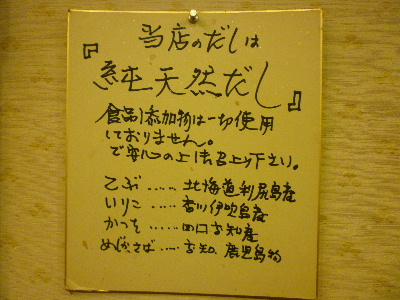 当店のだしは
『純天然だし』
食品添加物は一切使用
しておりません。
で安心の上お召上り下さい。
こぶ……北海道利尻島産
いりこ……香川伊吹島産
かつを……四国高知産
めじか、さば……高知、鹿児島物